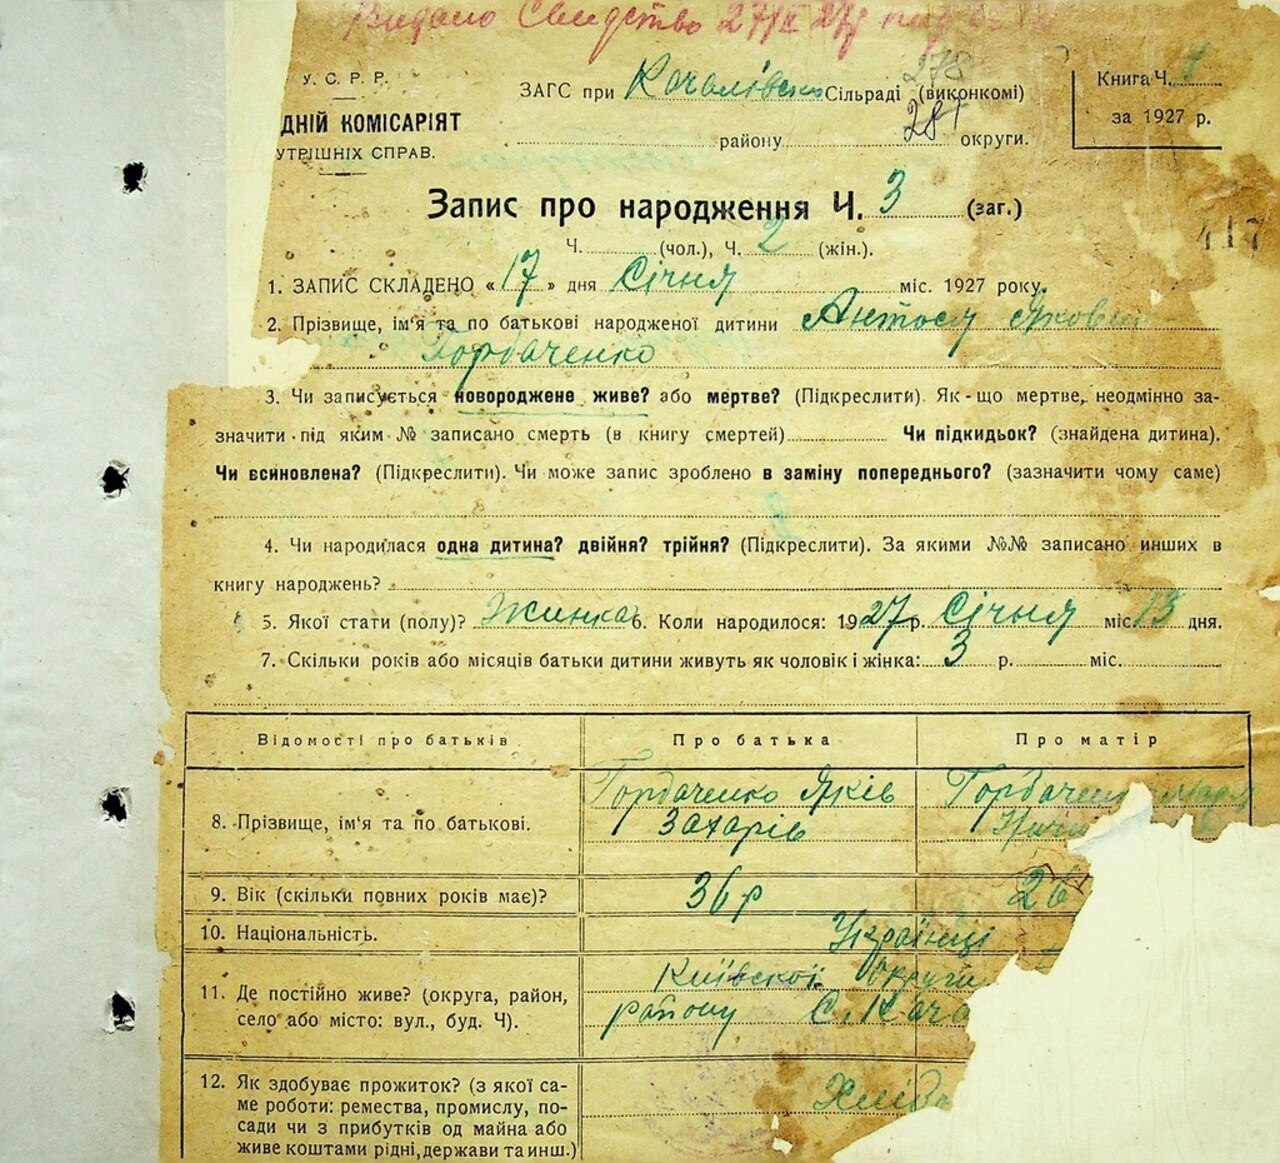 Видано Свидетво 27/II 27р
У. С. Р. Р.
ДНІЙ КОМІСАРІЯТ
УТРІШНІХ СПРАВ.
ЗАГС при Качалівск Сільраді (виконкомі)
278
281
району округи.
Книга Ч. 1
за 1927 р.
Запис про народження Ч. 3 (заг.)
Ч. (чол.), Ч. 2 (жін.).
417
1. ЗАПИС СКЛАДЕНО «17» дня Січня міс. 1927 року.
2. Прізвище, ім'я та по батькові народженої дитини Антося Яковів
Горбаченко
3. Чи записується новороджене живе? або мертве? (Підкреслити). Як-що мертве, неодмінно за-
значити під яким № записано смерть (в книгу смертей) Чи підкидьок? (знайдена дитина).
Чи всиновлена? (Підкреслити). Чи може запис зроблено в заміну попереднього? (зазначити чому саме)
4. Чи народилася одна дитина? двійня? трійня? (Підкреслити). За якими №№ записано инших в
книгу народжень?
5. Якої стати (полу)? Жинка 6. Коли народилося: 1927 р. Січня міс. 13 дня.
7. Скільки років або місяців батьки дитини живуть як чоловік і жінка: 3 р. міс.
Відомості про батьків Про батька Про матір
8. Прізвище, ім'я та по батькові. Горбаченко Яків Захарів Горбаченк
9. Вік (скільки повних років має)? 36 р 26
10. Національність. Українці
11. Де постійно живе? (округа, район, Київскої округи
село або місто: вул., буд. Ч). району С. Кача
12. Як здобуває прожиток? (з якої са-
ме роботи: ремества, промислу, по- Хліб
сади чи з прибутків од майна або
живе коштами рідні, держави та инш.)